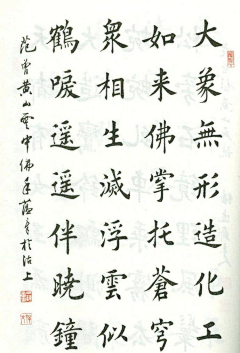 大象無形造化工
如来佛掌托蒼穹
衆相生滅浮雲似
鶴唳遥遥伴曉鐘
范曾黄山雲中佛手
於沽上